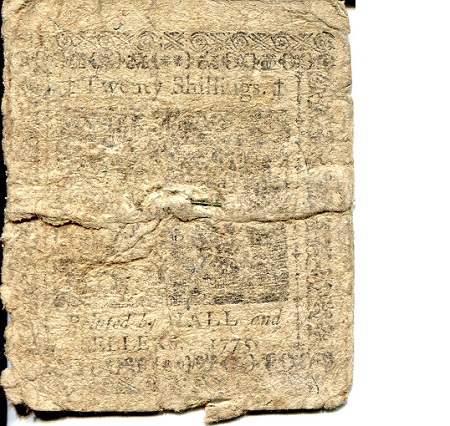 ‡ Twenty Shillings. ‡
Printed by HALL and
SELLERS. 1775.